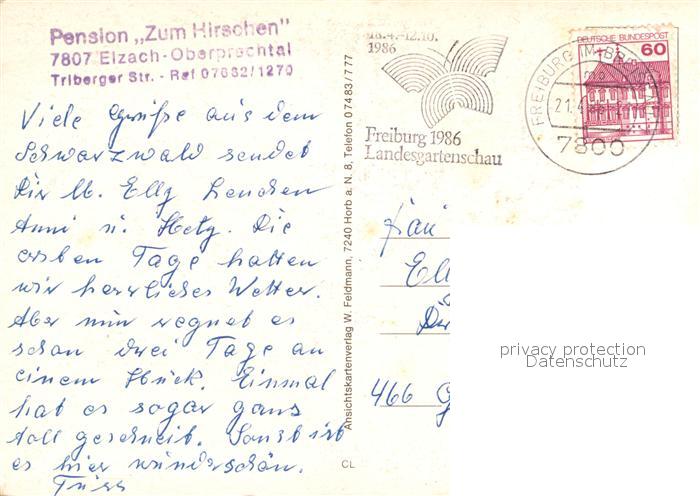 Pension „Zum Hirschen"
7807 Elzach-Oberprechtal
Triberger Str. - Ruf 07682/1270
Viele Grüße aus dem
Schwarzwald sendet
Dir lb. Elly
Anni u. Die
ersten Tage hatten
wir herrliches Wetter.
Aber nun regnet es
schon drei Tage an
einem Stück. Einmal
hat es sogar ganz
toll geschneit. Sonst ist
es hier wunderschön.
Tüss
Ansichtskartenverlag W. Feldmann, 7240 Horb a. N. 8, Telefon 07483/777
CL
18.4.-12.10.
1986
Freiburg 1986
Landesgartenschau
FREIBURG IM BR
21.4
7800
DEUTSCHE BUNDESPOST
60
Frau
Ell
466 G
privacy protection
Datenschutz